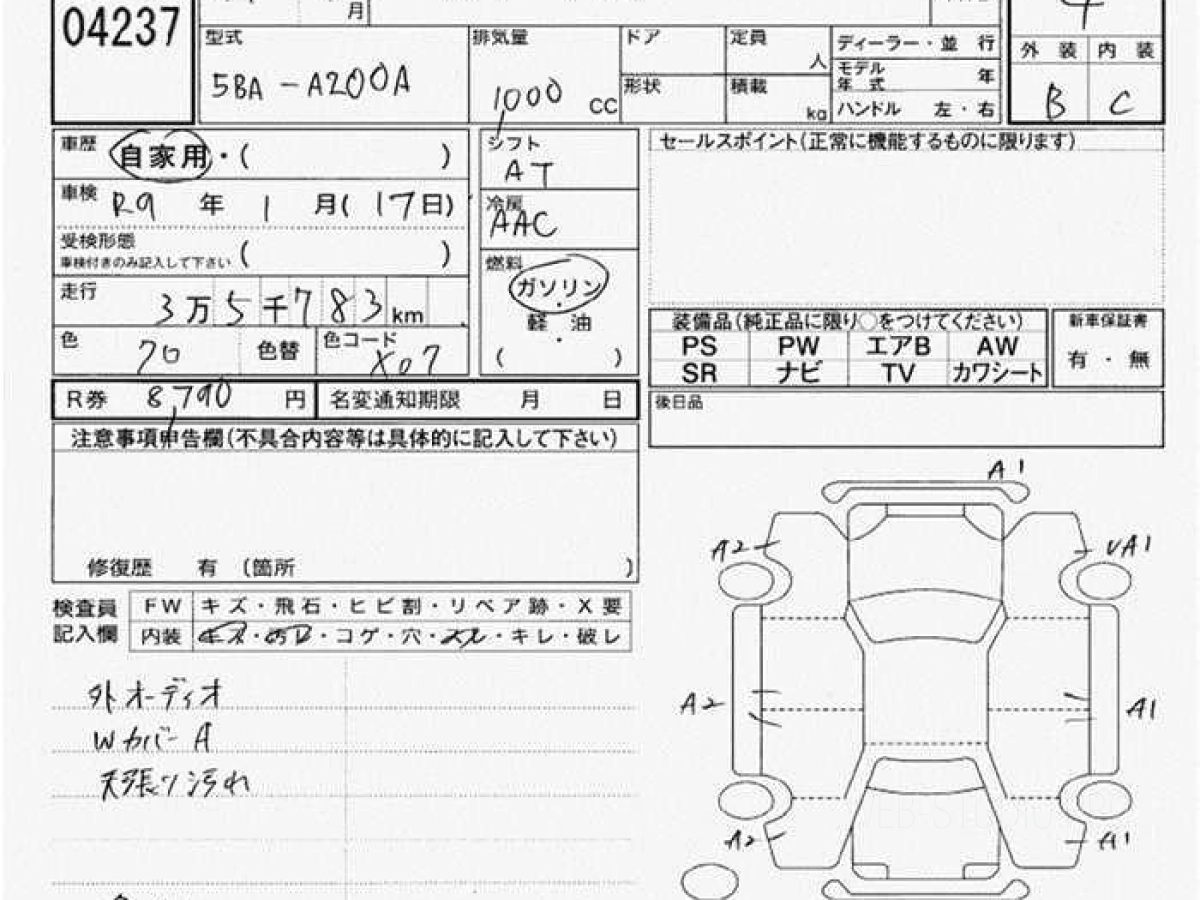 04237
月
4
型式 排気量 ドア 定員 人 ディーラー・並 行 外 装 内 装
5BA-A200A 1000 cc 形状 積載 kg モデル年式 年 B C
ハンドル 左・右
車歴 自家用・( ) シフト セールスポイント(正常に機能するものに限ります)
AT
車検 R9 年 1 月( 17日) 冷房
AAC
受検形態 ( )
車検付きのみ記入して下さい
燃料
ガソリン
・
軽 油
・
( )
走行 3万5千783km
色 70 色替 色コード X07
装備品(純正品に限り○をつけてください) 新車保証書
PS PW エアB AW 有・無
SR ナビ TV カワシート
R券 8,790 円 名変通知期限 月 日 後日品
注意事項申告欄(不具合内容等は具体的に記入して下さい)
修復歴 有 (箇所 )
検査員 FW キズ・飛石・ヒビ割・リペア跡・X要
記入欄 内装 キズ・汚レ・コゲ・穴・スレ・キレ・破レ
外オーディオ
WカバーA
天張り汚れ
A1
A2 UA1
A2 A1
A2 A1